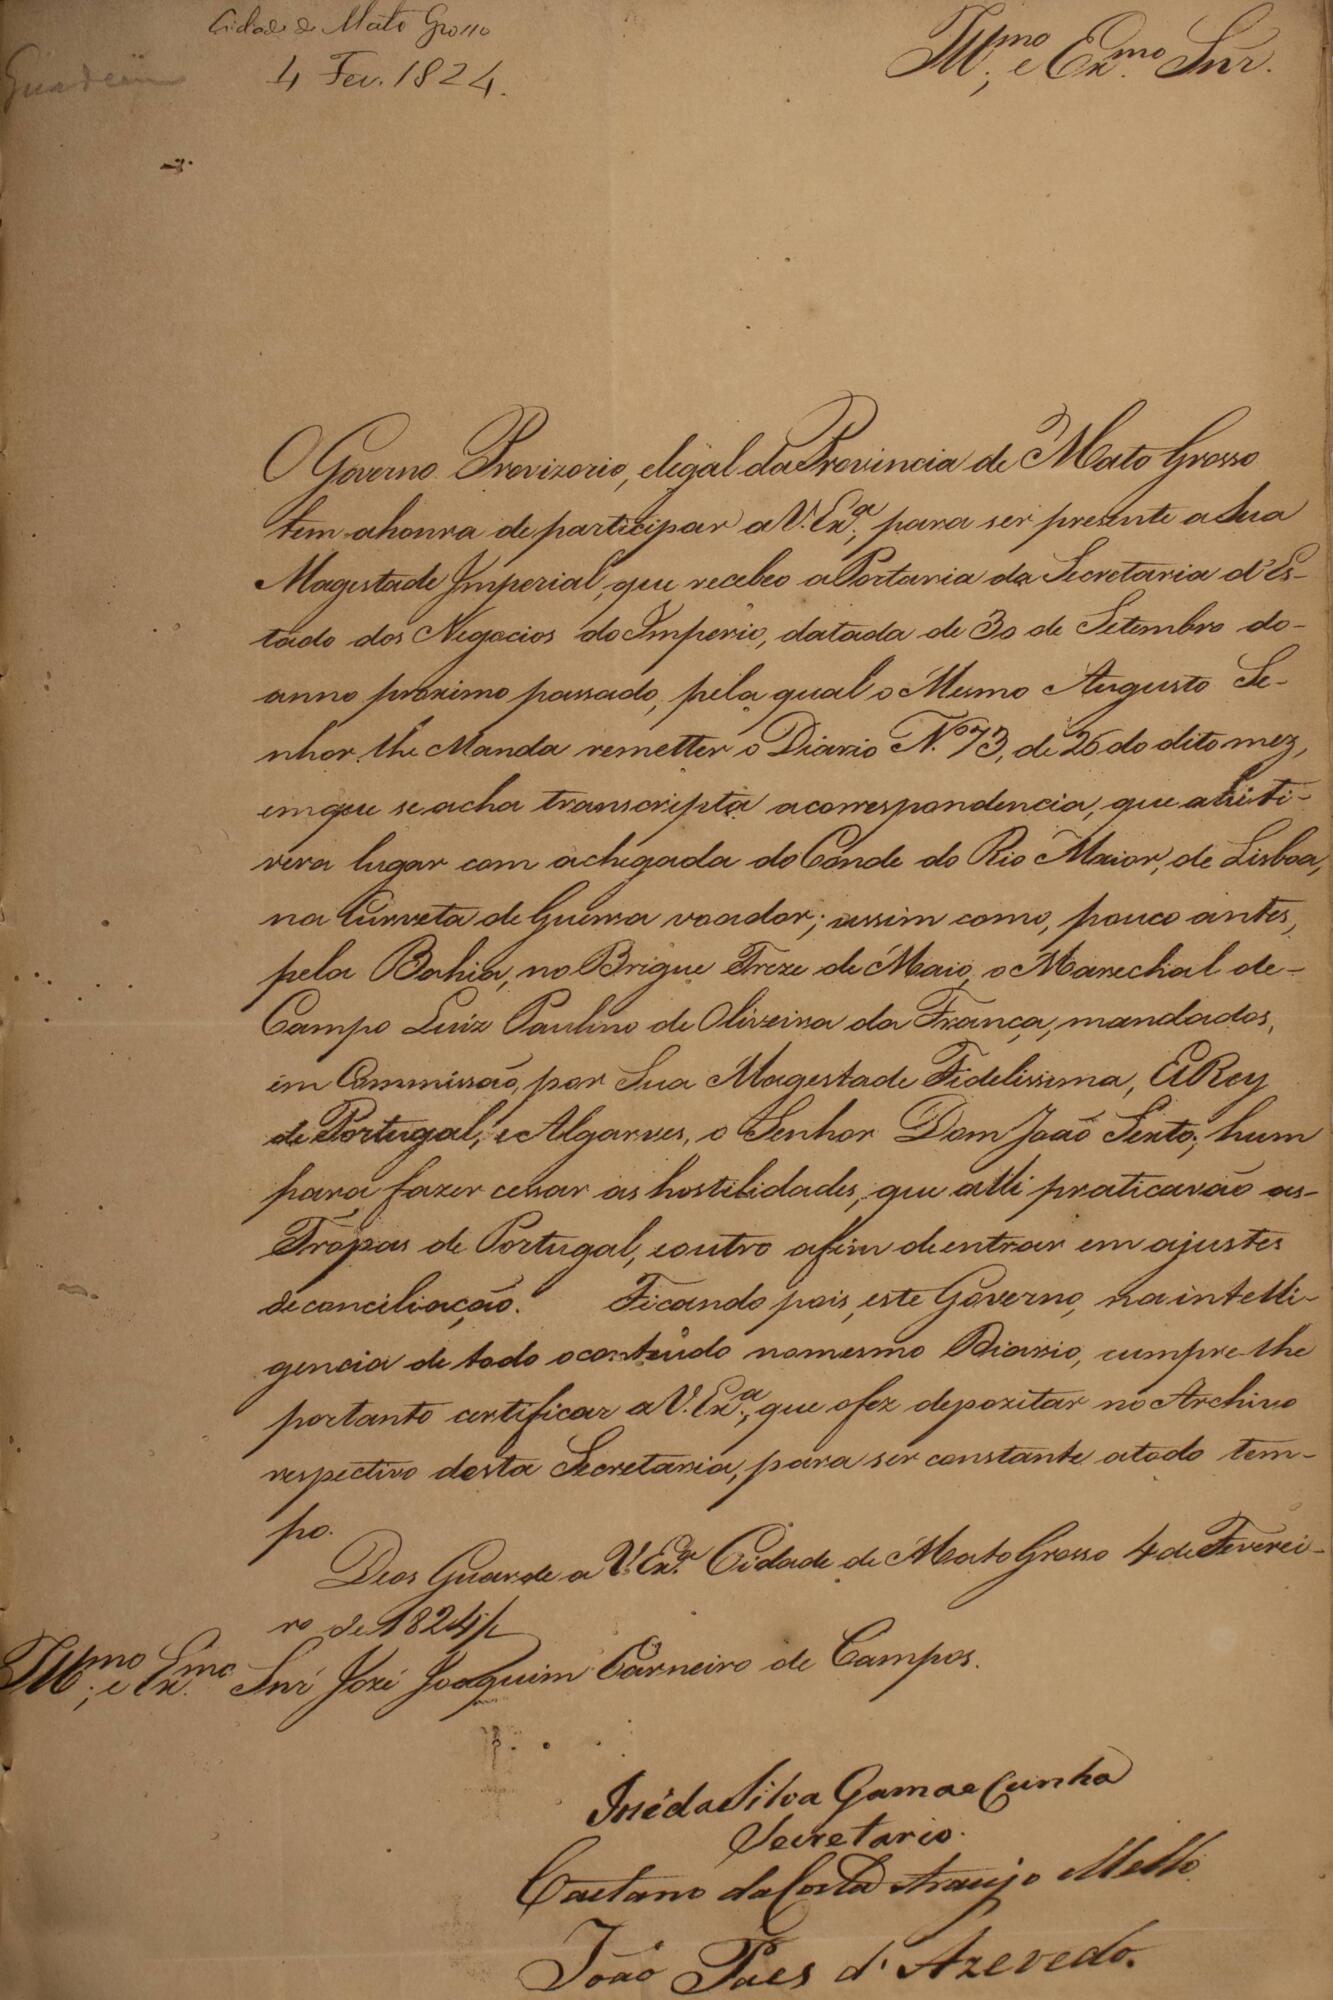 Cidade de Mato Grosso
4 Fev. 1824.
Ill.mo e Ex.mo Snr.
O Governo Provizorio, e legal da Provincia de Mato Grosso
tem a honra de participar a V. Ex.a, para ser presente a Sua
Magestade Imperial, que recebeo a Portaria da Secretaria d'Es-
tado dos Negocios do Imperio, datada de 30 de Setembro do
anno proximo passado, pela qual o Mesmo Augusto Se-
nhor lhe Manda remetter o Diario N.º 73, de 26 do dito mez,
em que se acha transcripta a correspondencia, que ahi ti-
vera lugar com a chegada do Conde do Rio Maior, de Lisboa,
na Curveta de Guerra voador; assim como, pouco antes,
pela Bahia, no Brigue Treze de Maio, o Marechal de
Campo Luiz Paulino de Oliveira da França, mandados,
em Commissão, por Sua Magestade Fidelissima, ElRey
de Portugal, e Algarves, o Senhor Dom João Sexto; hum
para fazer cessar as hostilidades, que alli praticavão as
Tropas de Portugal, e outro afim de entrar em ajustes
de conciliação. Ficando pois, este Governo, na intelli-
gencia de todo o conteúdo no mesmo Diario, cumpre-lhe
portanto certificar a V. Ex.a, que o fez depozitar no Archivo
respectivo desta Secretaria, para ser constante a todo tem-
po.
Deos Guarde a V. Ex.a Cidade de Mato Grosso 4 de Feverei-
ro de 1824
Ill.mo e Ex.mo Snr José Joaquim Carneiro de Campos.
José da Silva Gama e Cunha
Secretario.
Caetano da Costa Araujo e Mello
João Paes d'Azevedo.